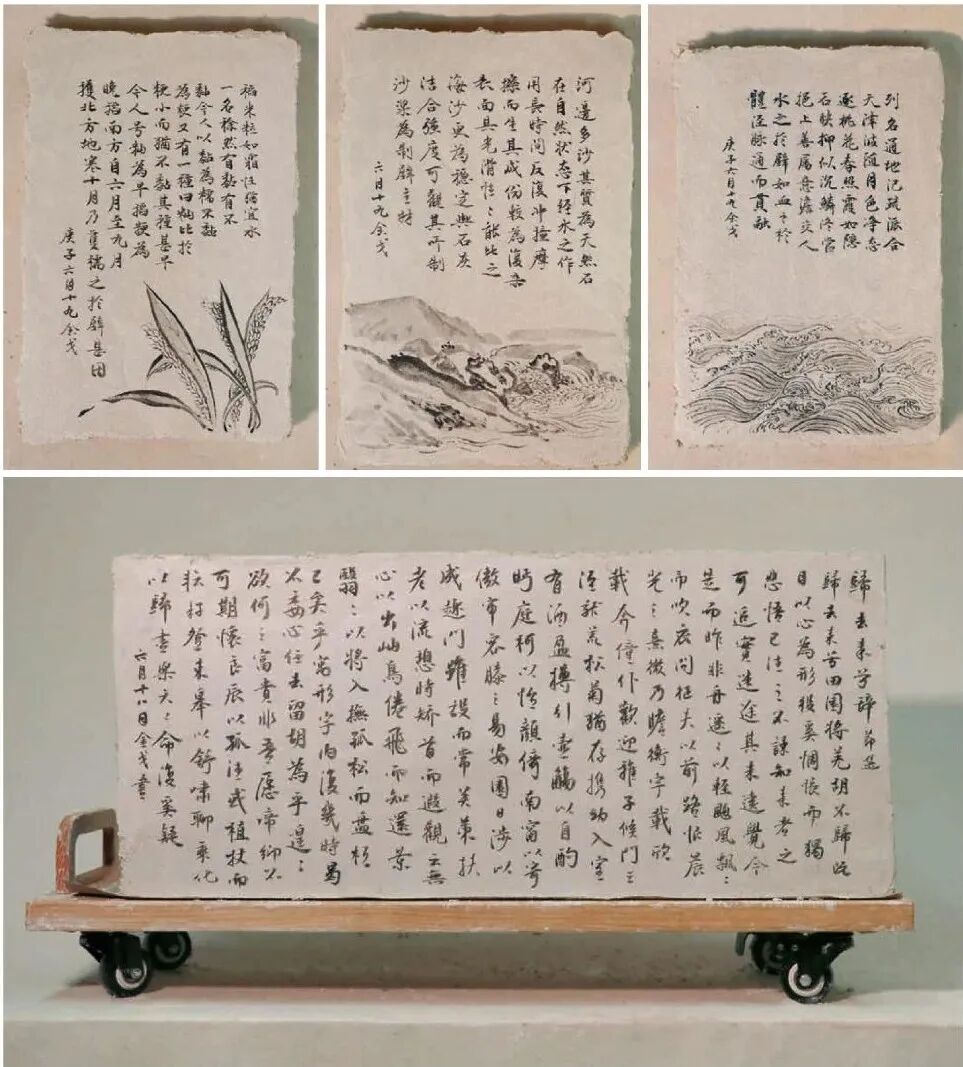 稻米粒如霜性宜水
一名稌然有黏有不
黏今人以黏為糯不黏
為秔又有一種曰秈比於
粳小而猶不黏其種甚早
今人号秈為早稻粳為
晚稻南方自六月至九月
獲北方地寒十月乃獲稿之於壁甚固
庚子六月十九余戈
河邊多沙其質為天然石
在自然狀态下經水之作
用長時間反復冲撞摩
擦而生其成份較為復杂
表面具光滑性々能比之
海沙更為穩定與石灰
洁合强度可觀其所制
沙漿為制壁主材
六月十九余戈
列名通地氾疏派合
天津波隨月色净态
逐桃花春照霞如隱
石映抑似沉鱗终當
挹上善屬意澹交人
水之於壁如血之於
體泾脉通而貫融
庚子六月十九余戈
歸去来兮辭 节选
歸去来兮田園将芜胡不歸既
自以心為形役奚惆悵而獨
悲悟已往之不諫知来者之
可追實迷途其未遠覺今
是而昨非舟遥々以輕颺風飄々
而吹衣问征夫以前路恨晨
光之熹微乃瞻衡宇載欣
載今僮仆歡迎雉子候門三
逕就荒松菊猶存携幼入室
有酒盈樽引壺觴以自酌
眄庭柯以怡顏倚南窗以寄
傲審容膝之易安園日涉以
成趣門雖設而常关策扶
老以流憩時矯首而遐觀云無
心以出岫鳥倦飛而知還景
翳々以将入撫孤松而盘桓
已矣乎寓形宇内復幾時曷
不委心任去留胡為乎遑々
欲何之富貴非吾愿帝鄉不
可期懷良辰以孤往或植杖而
耘耔登東皋以舒啸聊乘化
以歸盡樂夫天命復奚疑
六月十八日余戈書